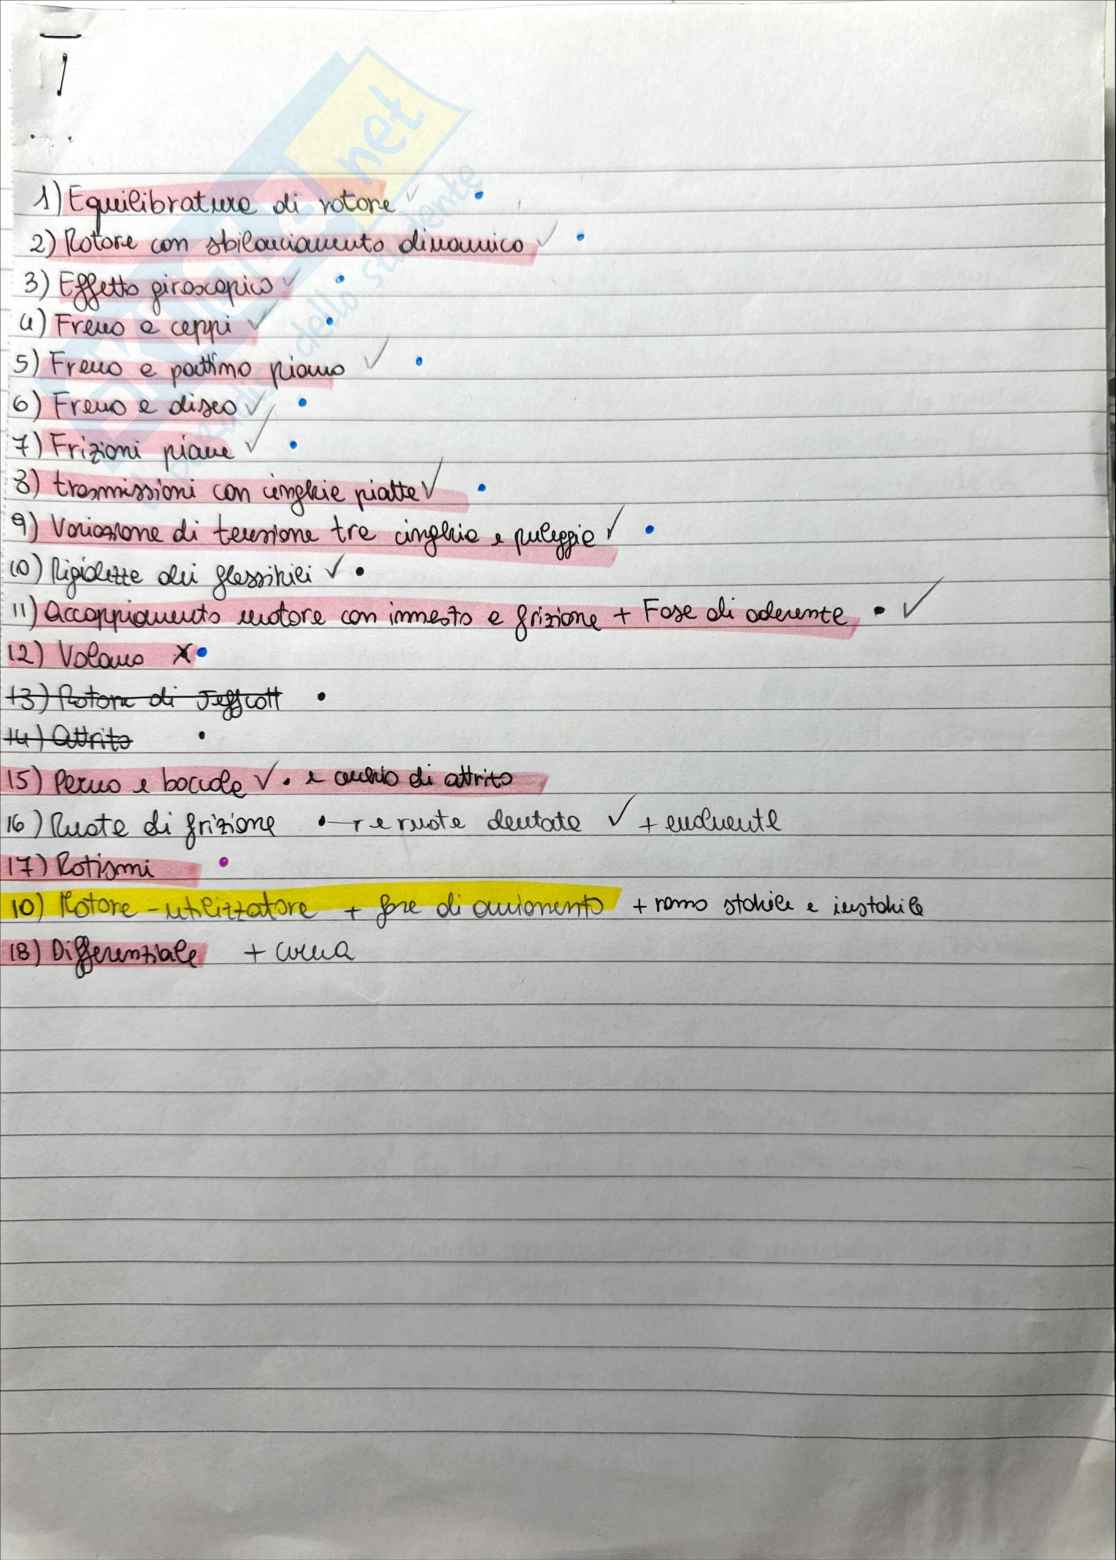 1) Equilibratura di rotore ✓ •
2) Rotore con sbilanciamento dinamico ✓ •
3) Effetto giroscopico ✓ •
4) Freno a ceppi ✓ •
5) Freno a pattino piano ✓ •
6) Freno a disco ✓ •
7) Frizioni piane ✓ •
8) trasmissioni con cinghie piatte ✓ •
9) Variazione di tensione tra cinghia e puleggia ✓ •
10) Rigidezza dei flessibili ✓ •
11) Accoppiamento motore con innesto a frizione + Fase di aderente • ✓
12) Volano X •
13) Rotore di Jeffcott •
14) Attrito •
15) Perno e boccola ✓ • e cerchio di attrito
16) Ruote di frizione • → e ruote dentate ✓ + evolvente
17) Rotismi •
10) Motore - utilizzatore + fase di avviamento + ramo stabile e instabile
18) Differenziale